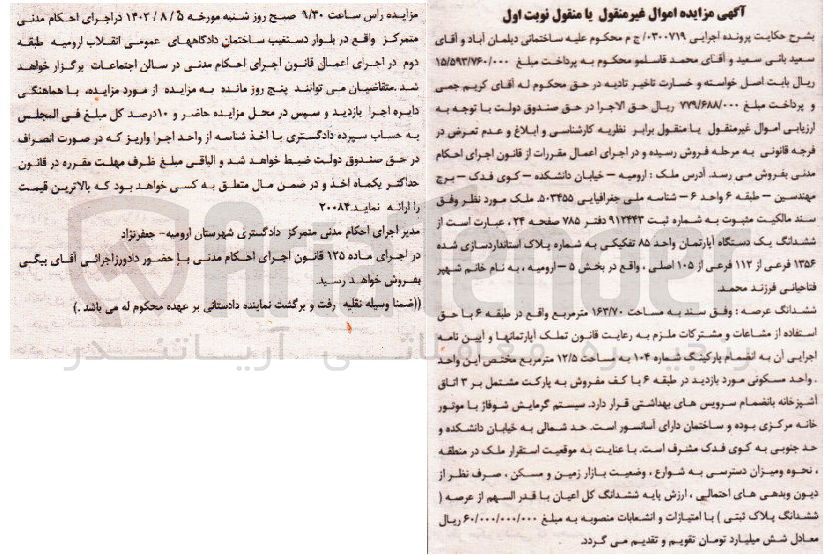 آگهی مزایده اموال غیرمنقول یا منقول نوبت اول
بشرح حکایت پرونده اجرایی ۰۳۰۰۷۱۹/ ج م محکوم علیه ساختمانی دیلمان آباد و آقای
سعید بانی سعید و آقای محمد قاسملو محکوم به پرداخت مبلغ ۱۵/۵۹۳/۷۶۰/۰۰۰
ریال بابت اصل خواسته و خسارت تاخیر تادیه در حق محکوم له آقای کریم جمی
و پرداخت مبلغ ۷۷۹/۶۸۸/۰۰۰ ریال حق الاجرا در حق صندوق دولت با توجه به
ارزیابی اموال غیرمنقول یا منقول برابر نظریه کارشناسی و ابلاغ و عدم تعرض در
فرجه قانونی به مرحله فروش رسیده و در اجرای اعمال مقررات از قانون اجرای احکام
مدنی بفروش می رسد. آدرس ملک : ارومیه – خیابان دانشکده – کوی فدک – برج
مهندسین – طبقه ۶ واحد ۶ – شناسه ملی جغرافیایی ۵۰۳۴۵۵. ملک مورد نظر وفق
سند مالکیت مثبوت به شماره ثبت ۹۱۲۴۴۳ دفتر ۷۸۵ صفحه ۲۴ ، عبارت است از
ششدانگ یک دستگاه آپارتمان واحد ۸۵ تفکیکی به شماره پلاک استانداردسازی شده
۱۳۵۶ فرعی از ۱۱۲ فرعی از ۱۰۵ اصلی ، واقع در بخش ۵ – ارومیه ، به نام خانم شهپر
فتاحیانی فرزند محمد.
ششدانگ عرصه : وفق سند به مساحت ۱۶۳/۷۰ مترمربع واقع در طبقه ۶ با حق
استفاده از مشاعات و مشترکات ملزم به رعایت قانون تملک آپارتمانها و آیین نامه
اجرایی آن به انضمام پارکینگ شماره ۱۰۴ به مساحت ۱۲/۵ مترمربع مختص این واحد
. واحد مسکونی مورد بازدید در طبقه ۶ با کف مفروش به پارکت مشتمل بر ۳ اتاق
آشپزخانه بانضمام سرویس های بهداشتی قرار دارد. سیستم گرمایش شوفاژ با موتور
خانه مرکزی بوده و ساختمان دارای آسانسور است. حد شمالی به خیابان دانشکده و
حد جنوبی به کوی فدک مشرف است. با عنایت به موقعیت استقرار ملک در منطقه
، نحوه ومیزان دسترسی به شوارع ، وضعیت بازار زمین و مسکن ، صرف نظر از
دیون وبدهی های احتمالی ، ارزش پایه ششدانگ کل اعیان با قدر السهم از عرصه (
ششدانگ پلاک ثبتی ) با امتیازات و انشعابات منصوبه به مبلغ ۶۰/۰۰۰/۰۰۰/۰۰۰ ریال
معادل شش میلیارد تومان تقویم و تقدیم می گردد.
مزایده راس ساعت ۹/۳۰ صبح روز شنبه مورخه ۱۴۰۲ / ۸ / ۵ دراجرای احکام مدنی
متمرکز واقع در بلوار دستغیب ساختمان دادگاههای عمومی انقلاب ارومیه طبقه
دوم در اجرای اعمال قانون اجرای احکام مدنی در سالن اجتماعات برگزار خواهد
شد .متقاضیان می توانند پنج روز مانده به مزایده از مورد مزایده، با هماهنگی
دایره اجرا بازدید و سپس در محل مزایده حاضر و ۱۰درصد کل مبلغ فی المجلس
به حساب سپرده دادگستری با اخذ شناسه از واحد اجرا واریز که در صورت انصراف
در حق صندوق دولت ضبط خواهد شد و الباقی مبلغ ظرف مهلت مقرره در قانون
حداکثر یکماه اخذ و در ضمن مال متعلق به کسی خواهد بود که بالاترین قیمت
را ارائه نماید.۲۰۰۸۴
مدیر اجرای احکام مدنی متمرکز دادگستری شهرستان ارومیه- جعفرنژاد
در اجرای ماده ۱۲۵ قانون اجرای احکام مدنی با حضور دادورزاجرائی آقای بیگی
بفروش خواهد رسید.
((ضمنا وسیله نقلیه رفت و برگشت نماینده دادستانی بر عهده محکوم له می باشد .)
AriaTender